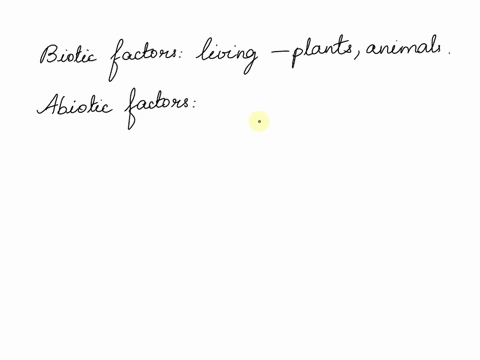 Biotic factors: living — plants, animals.
Abiotic factors: